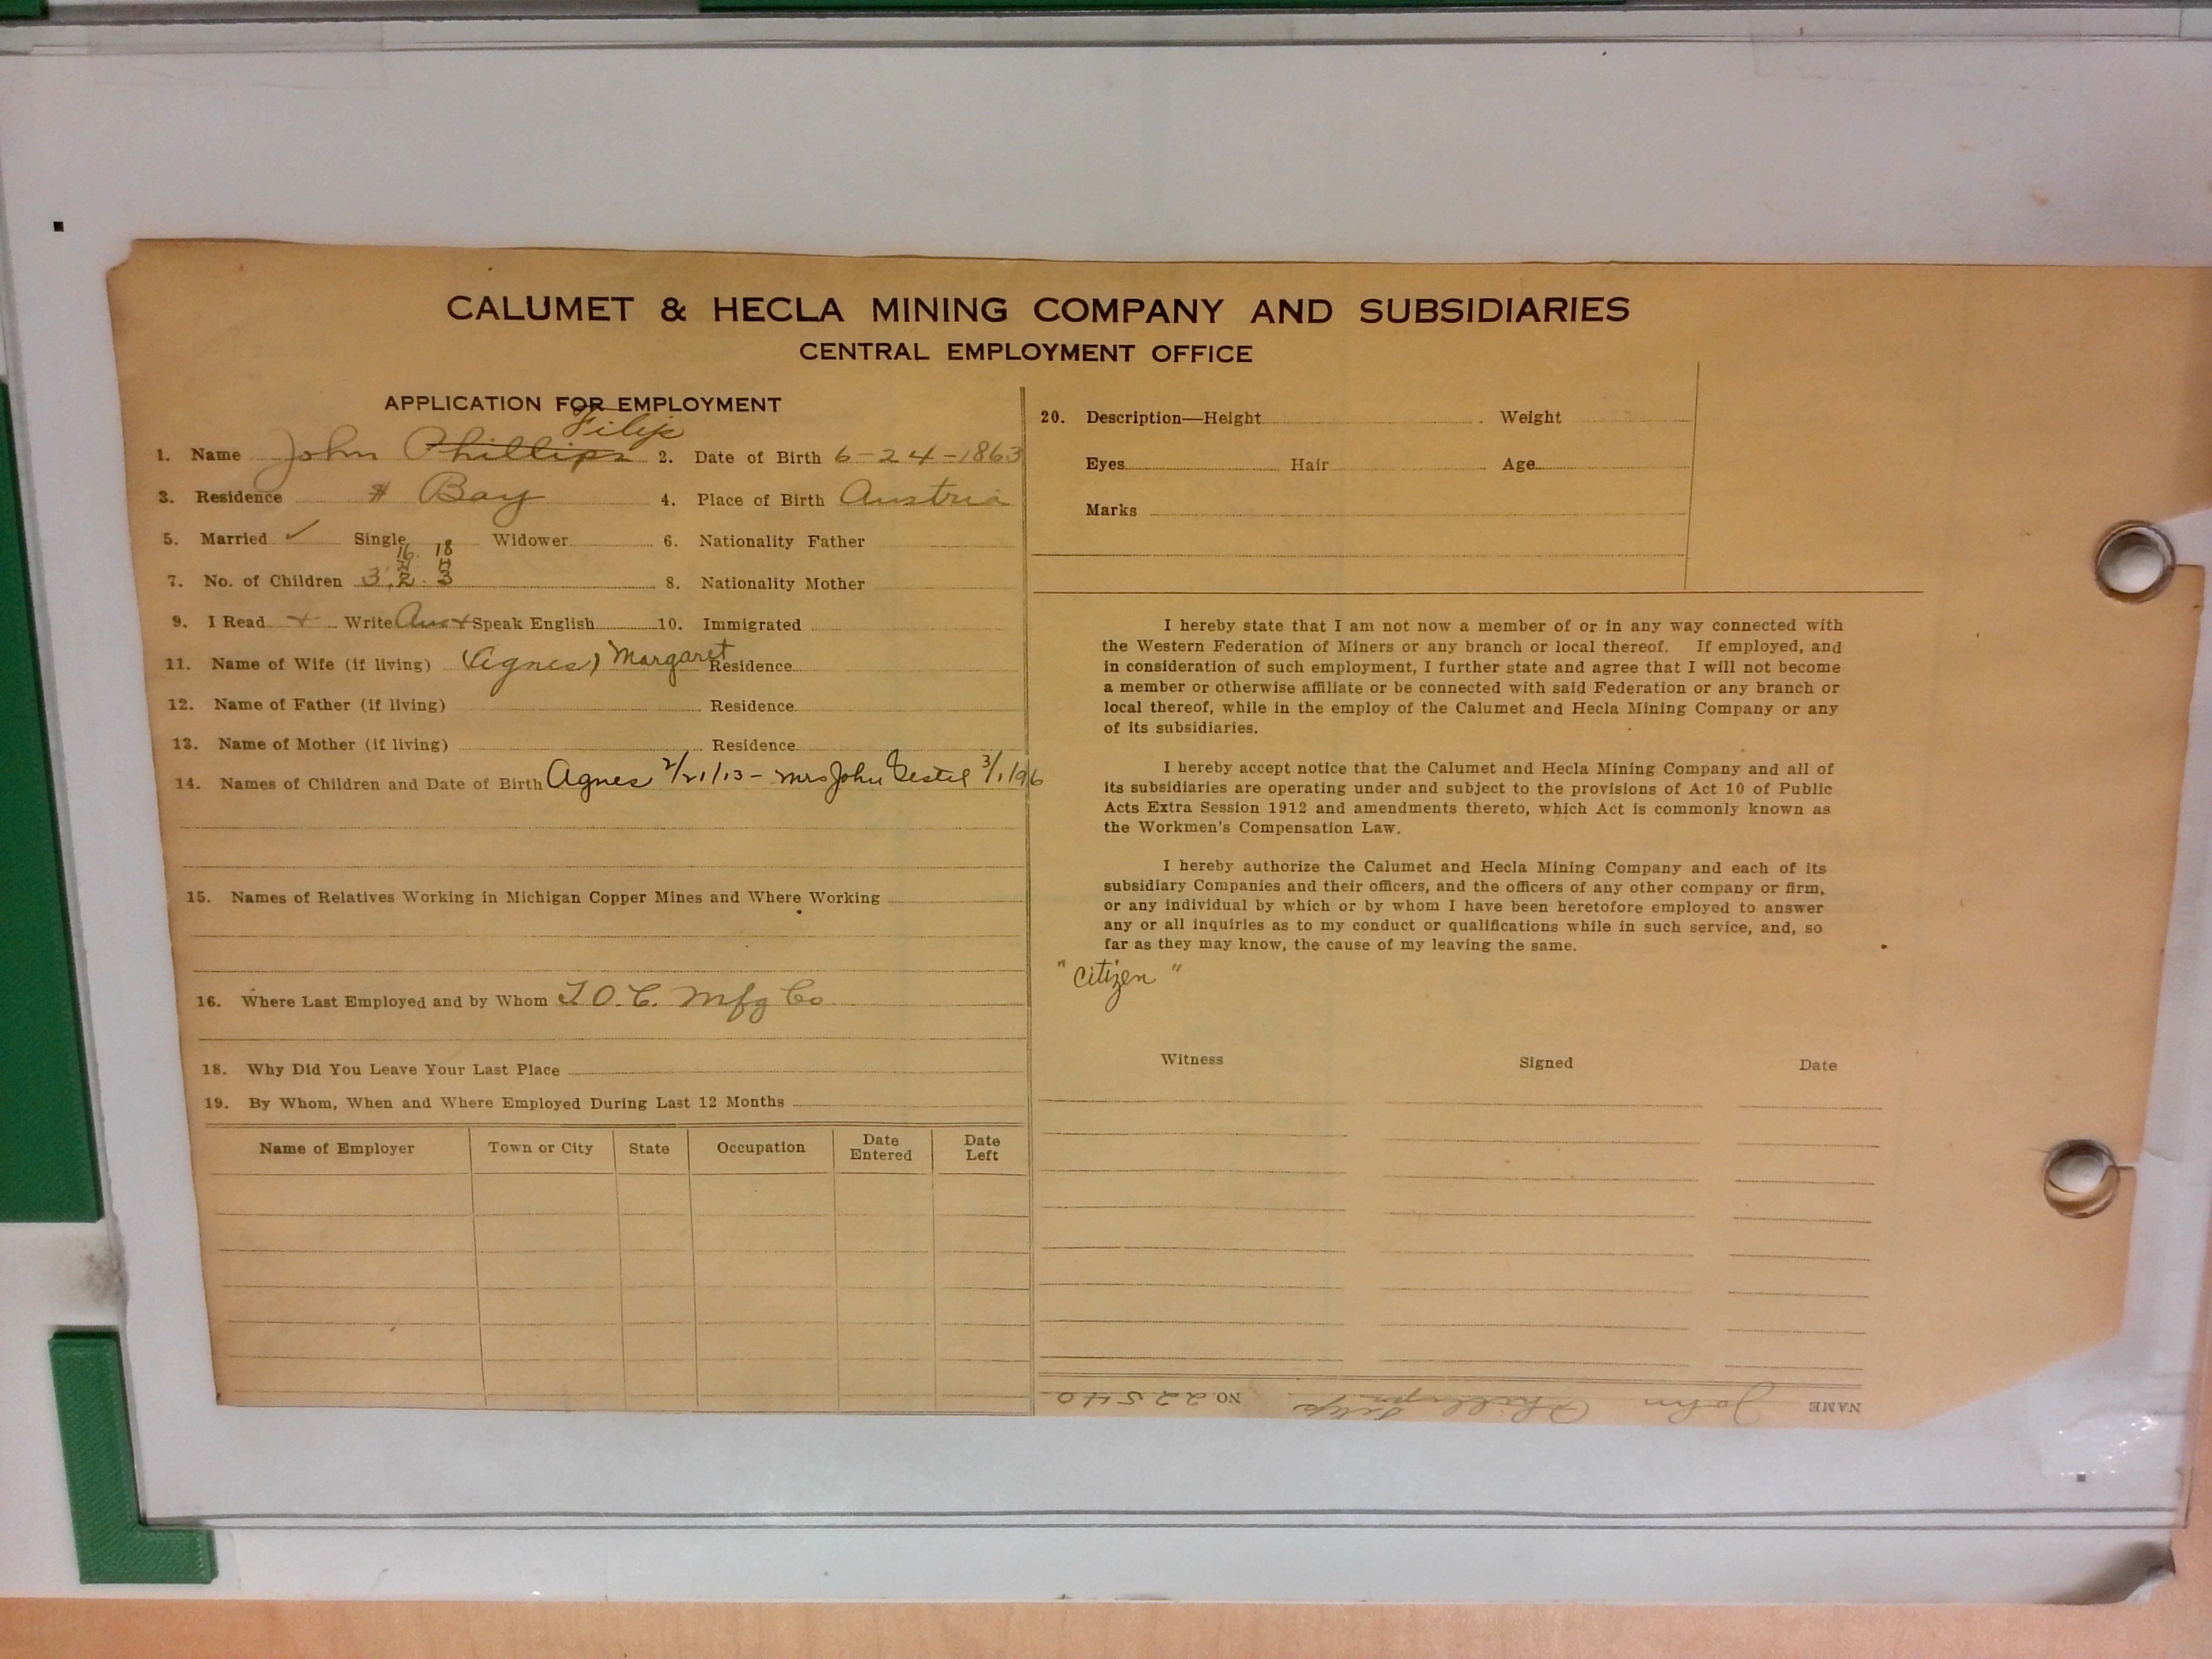 CALUMET & HECLA MINING COMPANY AND SUBSIDIARIES
CENTRAL EMPLOYMENT OFFICE
APPLICATION FOR EMPLOYMENT
Filip
1. Name John Phillips 2. Date of Birth 6-24-1863
3. Residence # Bay 4. Place of Birth Austria
5. Married ✓ Single Widower 6. Nationality Father
16. 18
7. No. of Children 3. 2. 3 8. Nationality Mother
9. I Read + Write Aus + Speak English 10. Immigrated
11. Name of Wife (if living) (Agnes) Margaret Residence
12. Name of Father (if living) Residence
13. Name of Mother (if living) Residence
14. Names of Children and Date of Birth Agnes 2/21/13 - Mrs John 3/1/96
15. Names of Relatives Working in Michigan Copper Mines and Where Working
16. Where Last Employed and by Whom T. O. C. Mfg Co
18. Why Did You Leave Your Last Place
19. By Whom, When and Where Employed During Last 12 Months
Name of Employer Town or City State Occupation Date Entered Date Left
20. Description—Height Weight
Eyes Hair Age
Marks
I hereby state that I am not now a member of or in any way connected with
the Western Federation of Miners or any branch or local thereof. If employed, and
in consideration of such employment, I further state and agree that I will not become
a member or otherwise affiliate or be connected with said Federation or any branch or
local thereof, while in the employ of the Calumet and Hecla Mining Company or any
of its subsidiaries.
I hereby accept notice that the Calumet and Hecla Mining Company and all of
its subsidiaries are operating under and subject to the provisions of Act 10 of Public
Acts Extra Session 1912 and amendments thereto, which Act is commonly known as
the Workmen's Compensation Law.
I hereby authorize the Calumet and Hecla Mining Company and each of its
subsidiary Companies and their officers, and the officers of any other company or firm,
or any individual by which or by whom I have been heretofore employed to answer
any or all inquiries as to my conduct or qualifications while in such service, and, so
far as they may know, the cause of my leaving the same.
"Citizen"
Witness Signed Date
NAME John Phillips Filip NO. 22540